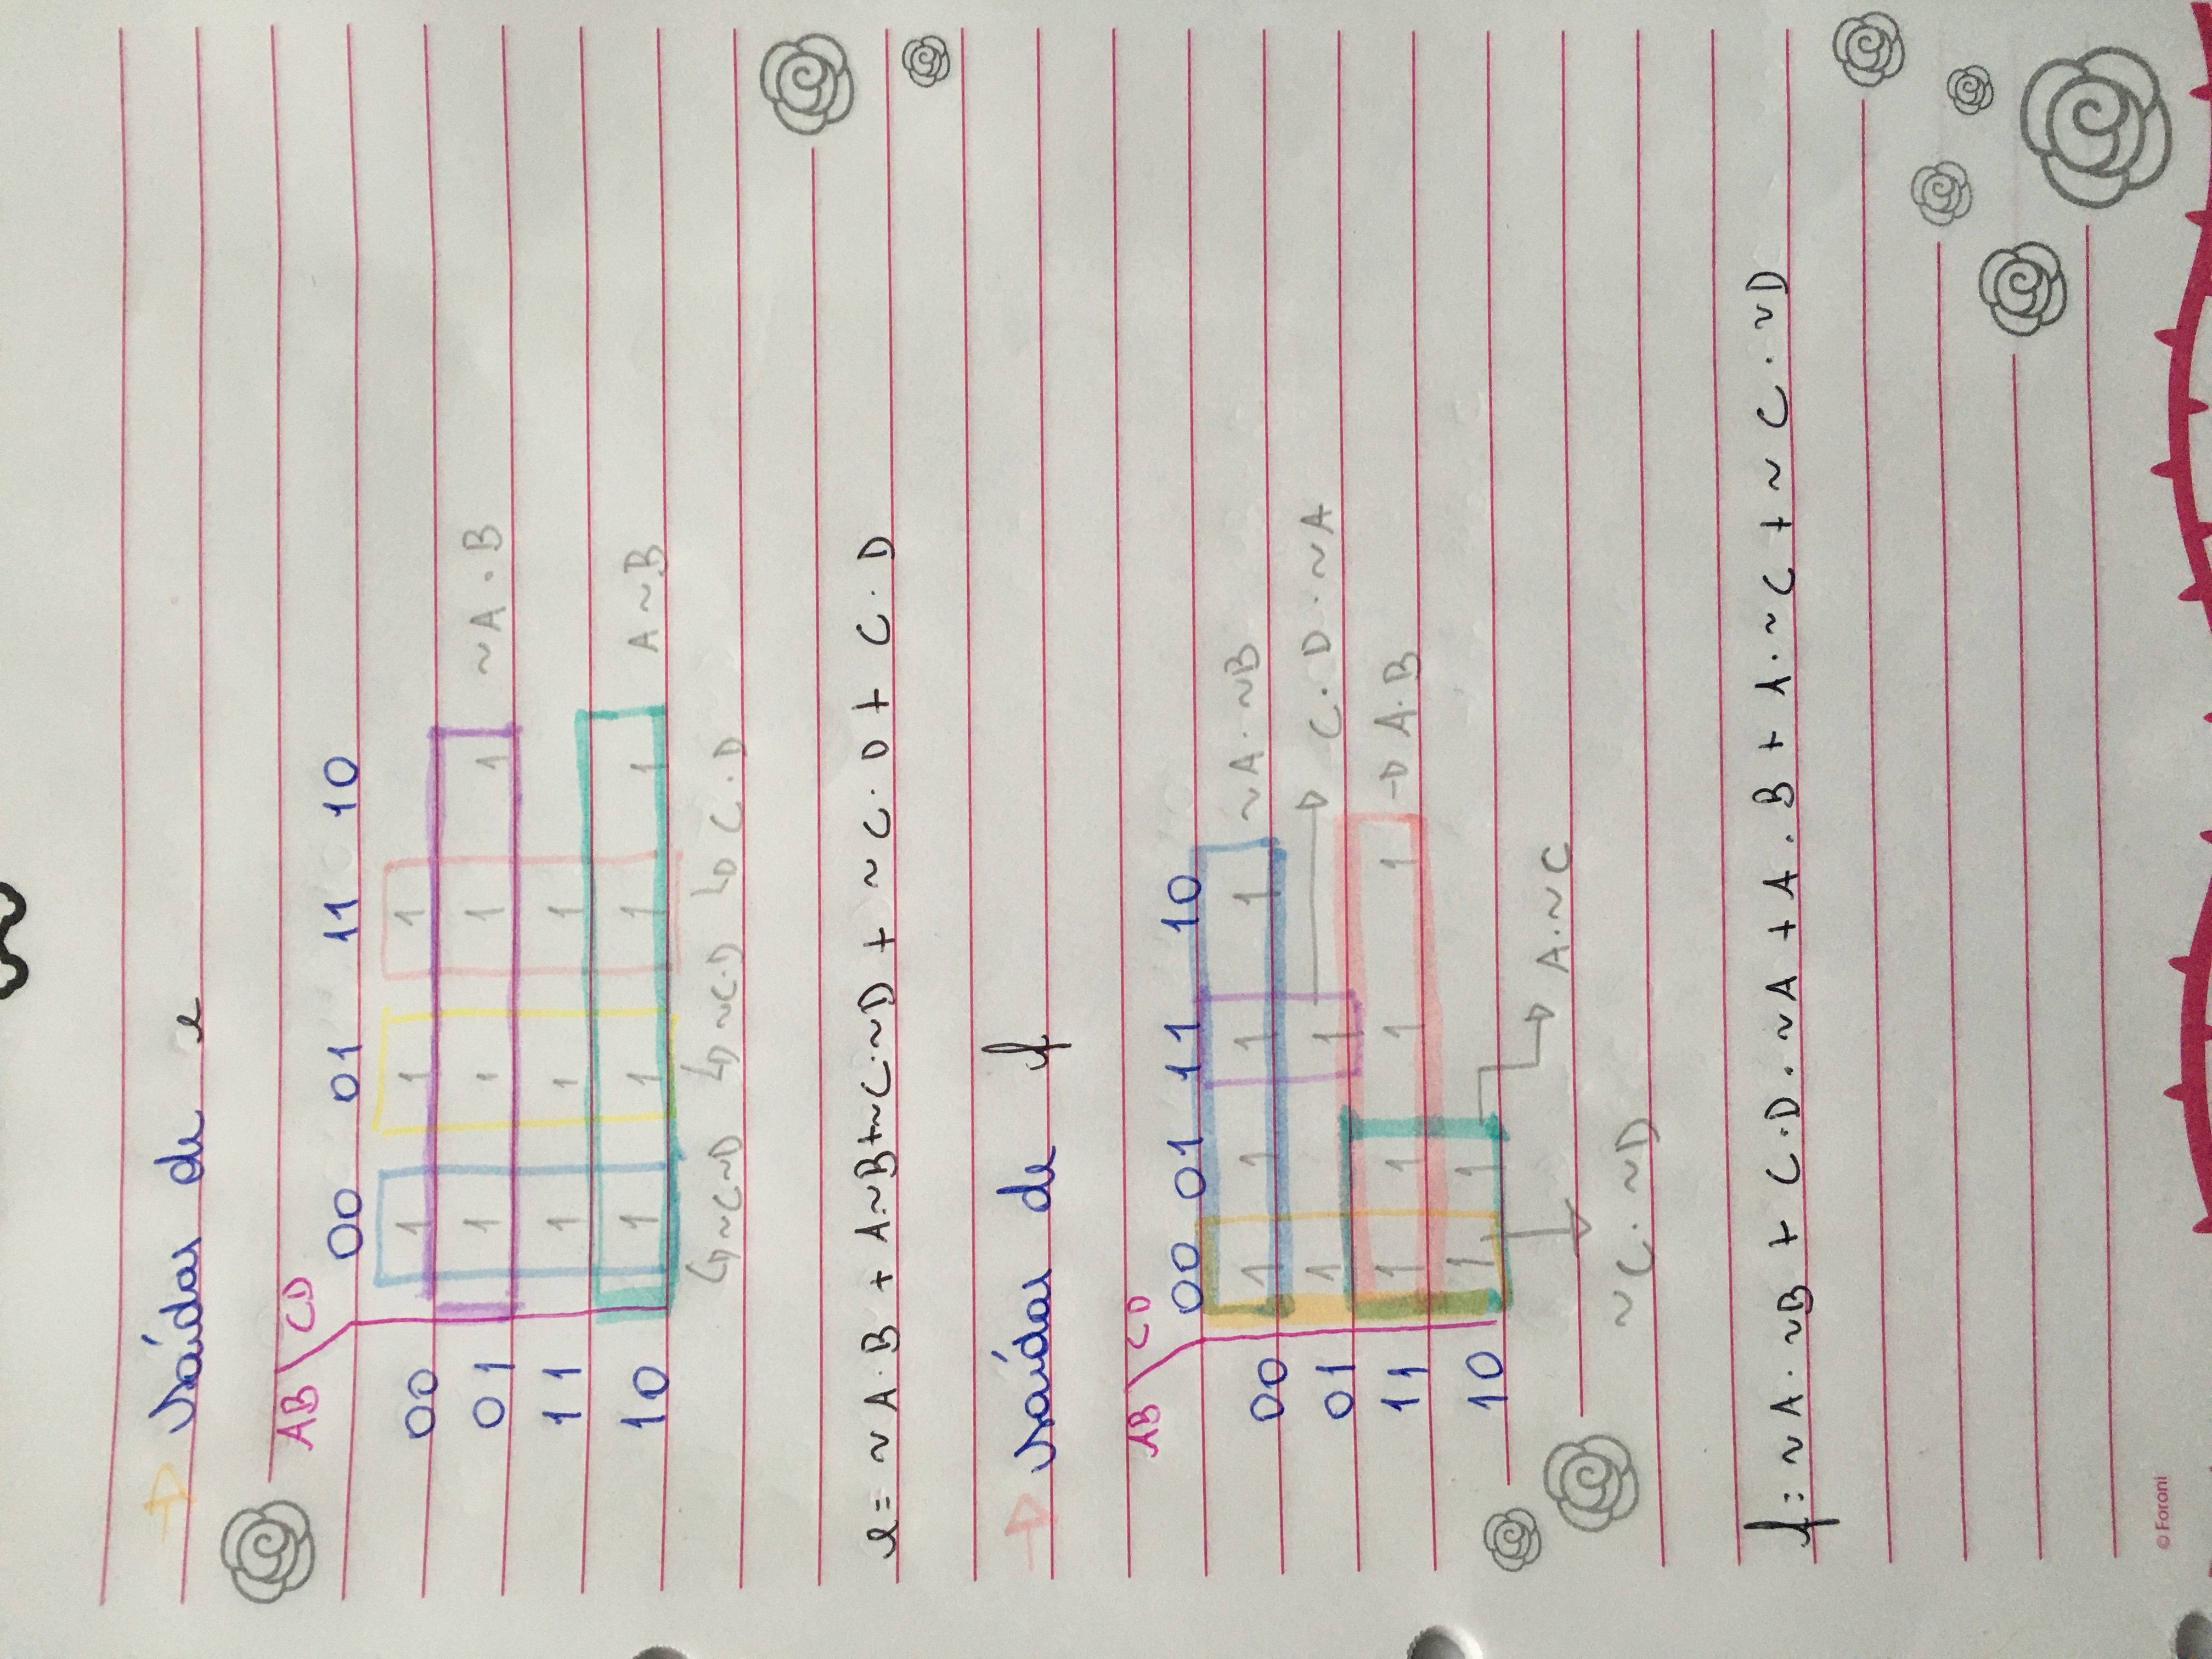 Saídas de e
AB \ CD
00 01 11 10
00 1 1 1
01 1 1 1 1 ~A . B
11 1 1 1
10 1 1 1 1 A ~B
~C~D ~C.D C . D
e = ~A.B + A.~B+~C.~D + ~C.D + C.D
Saídas de f
AB \ CD
00 01 11 10
00 1 1 1 1 ~A. ~B
01 1 1 C. D. ~A
11 1 1 1 1 A.B
10 1 1
A.~C
~C. ~D
f = ~A. ~B + C.D. ~A + A . B + A.~C + ~C. ~D
© Foroni